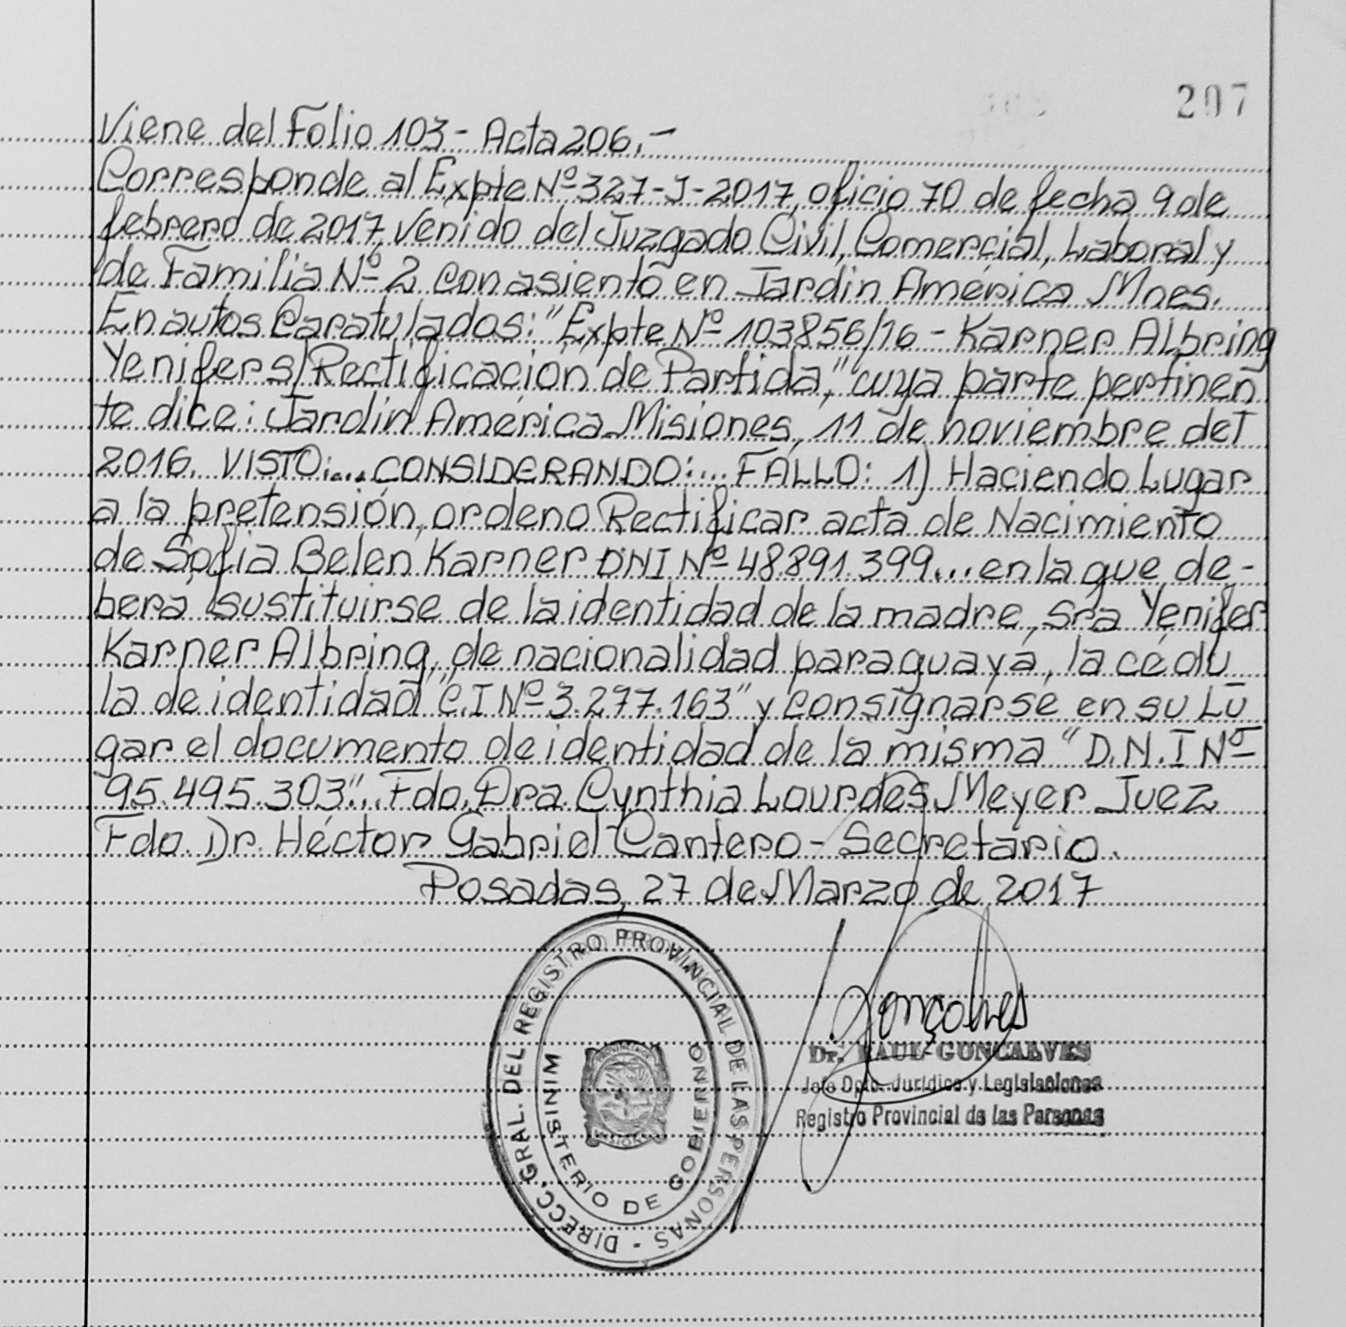 207
Viene del Folio 103 - Acta 206.-
Corresponde al Expte Nº 327-J-2017, oficio 70 de fecha 9 de
febrero de 2017, venido del Juzgado Civil, Comercial, Laboral y
de Familia Nº 2 con asiento en Jardín América Mnes.
En autos Caratulados: "Expte Nº 103856/16 - Karner Albring
Yenifer s/Rectificación de Partida," cuya parte pertinen
te dice: Jardín América Misiones, 11 de noviembre del
2016. VISTO:... CONSIDERANDO:... FALLO: 1) Haciendo Lugar
a la pretensión, ordeno Rectificar acta de Nacimiento
de Sofia Belen Karner DNI Nº 48891.399... en la que de-
bera sustituirse de la identidad de la madre, Sra Yenifer
Karner Albring, de nacionalidad paraguaya, la cédu
la de identidad "C.I Nº 3.277.163" y consignarse en su Lu
gar el documento de identidad de la misma "D.N.I Nº
95.495.303"... Fdo. Dra. Cynthia Lourdes Meyer Juez
Fdo. Dr. Héctor Gabriel Cantero - Secretario.
Posadas, 27 de Marzo de 2017
DIRECC. GRAL. DEL REGISTRO PROVINCIAL DE LAS PERSONAS -
MINISTERIO DE GOBIERNO
Gonçalves
Dr. RAUL GONCALVES
Jefe Dpto. Jurídico y Legislaciones
Registro Provincial de las Personas